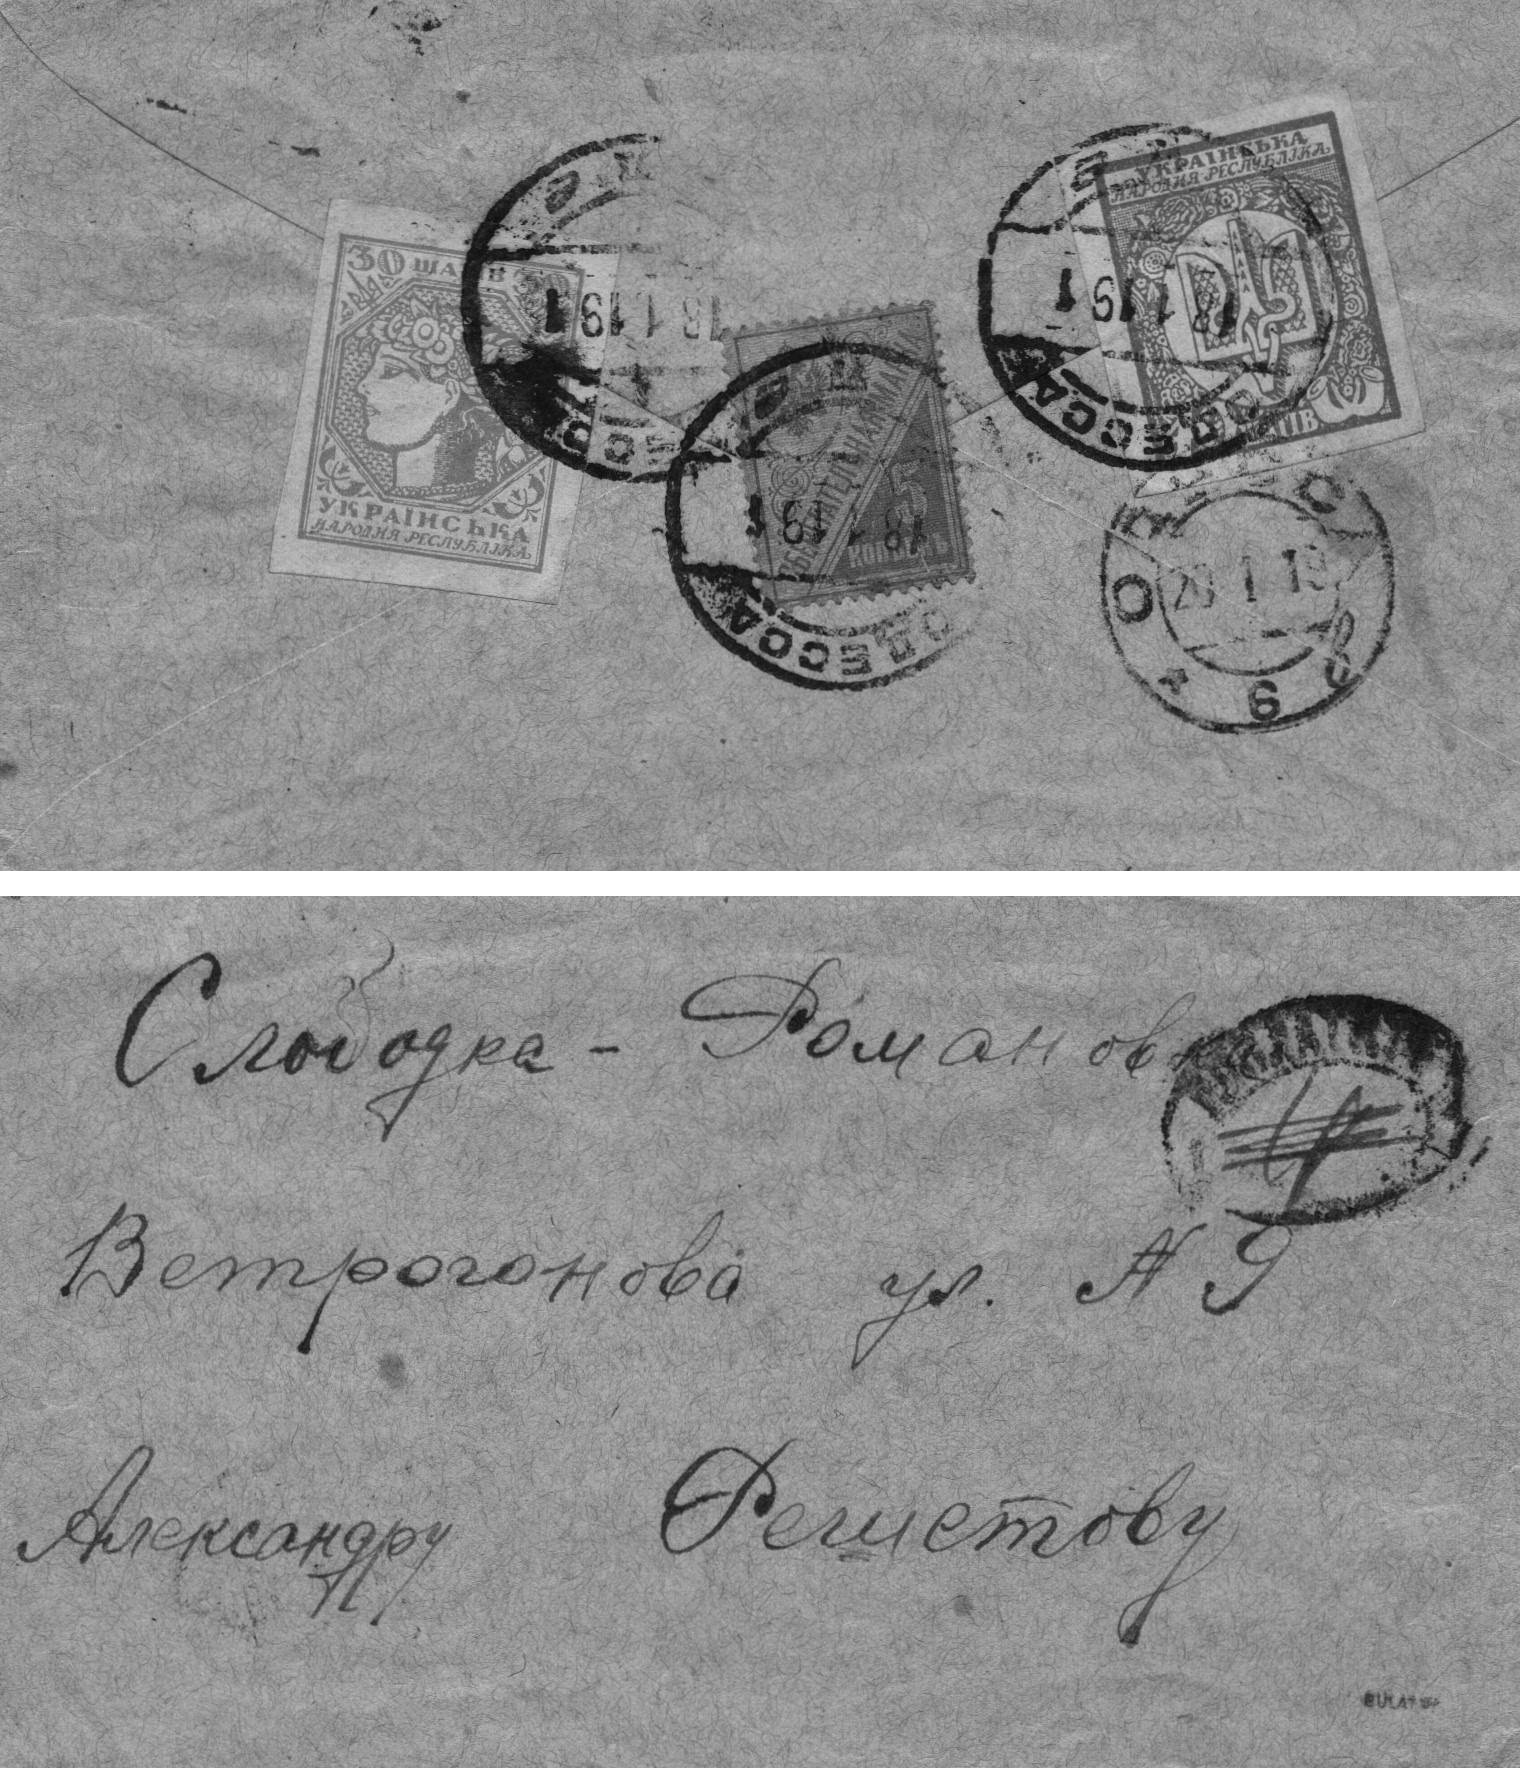 30 ШАГІВ 30
УКРАЇНСЬКА
НАРОДНЯ РЕСПУБЛІКА
ОДЕССА
18 1 19 1
5
КОПѢЕКЪ
ОДЕССА
18 1 19 1
УКРАЇНСЬКА
НАРОДНЯ РЕСПУБЛІКА
ШАГІВ
ОДЕССА
18 1 19 1
ОДЕССА
20 1 19
Слободка - Романовка
Ветрогонова ул. № 9
Александру Решетову
BULAT